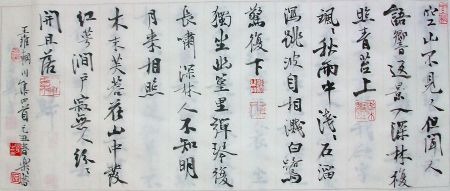 空山不見人但聞人
語響返景入深林復
照青苔上
颯々秋雨中淺々石溜
瀉跳波自相濺白鷺
驚復下
獨坐幽篁里彈琴復
長嘯深林人不知明
月来相照
木末芙蓉花山中發
紅萼澗戶寂無人紛々
開且落
王維輞川集四首